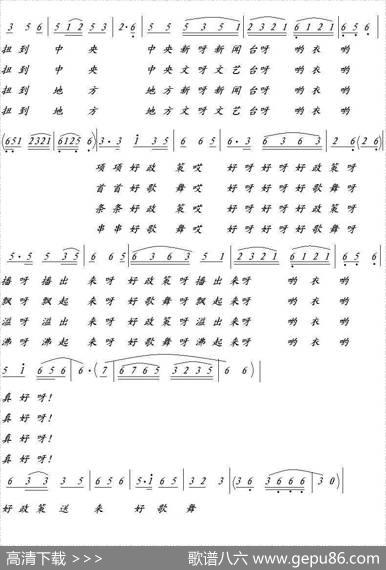 3 5 6 | 5 1 2 3 | 2·6 | 5 5 5 3 5 1 | 2 3 2 1 6 1 2 1 | 6 5 6
扭到 中央 中央新呀新闻台呀 哟衣哟
扭到 中央 中央文呀文艺台呀 哟衣哟
扭到 地方 地方新呀新闻台呀 哟衣哟
扭到 地方 地方文呀文艺台呀 哟衣哟
(6 5 1 2 3 2 1 | 6 1 2 5 6) | 3·3 i 3 5 | 5 6 5 | 6·3 6 3 6 3 | 2 6 (2 6)
项项好政策哎 好呀好呀好政策呀
首首好歌舞哎 好呀好呀好歌舞呀
条条好政策哎 好呀好呀好政策呀
串串好歌舞哎 好呀好呀好歌舞呀
5·5 5 3 5 | 6 5 6 3 6 3 | 5 1 | 2 3 2 1 6 1 2 1 | 6 5 6
播呀播出来呀好政策呀播出来呀 哟衣哟
飘呀飘起来呀好歌舞呀飘起来呀 哟衣哟
溢呀溢出来呀好政策呀溢出来呀 哟衣哟
沸呀沸起来呀好歌舞呀沸起来呀 哟衣哟
5 i 6 5 6 | 6·(7 | 6 7 6 5 3 2 3 5 | 6 6)
真好呀!
真好呀!
真好呀!
真好呀!
6 3 3 | 3 5 | 6 5 6 | 5·i 6 5 | 3 2 3 | (3 6 3 6 6 6 | 3 0)
好政策送来好歌舞
高清下载 >>> 歌谱八六 www.gepu86.com